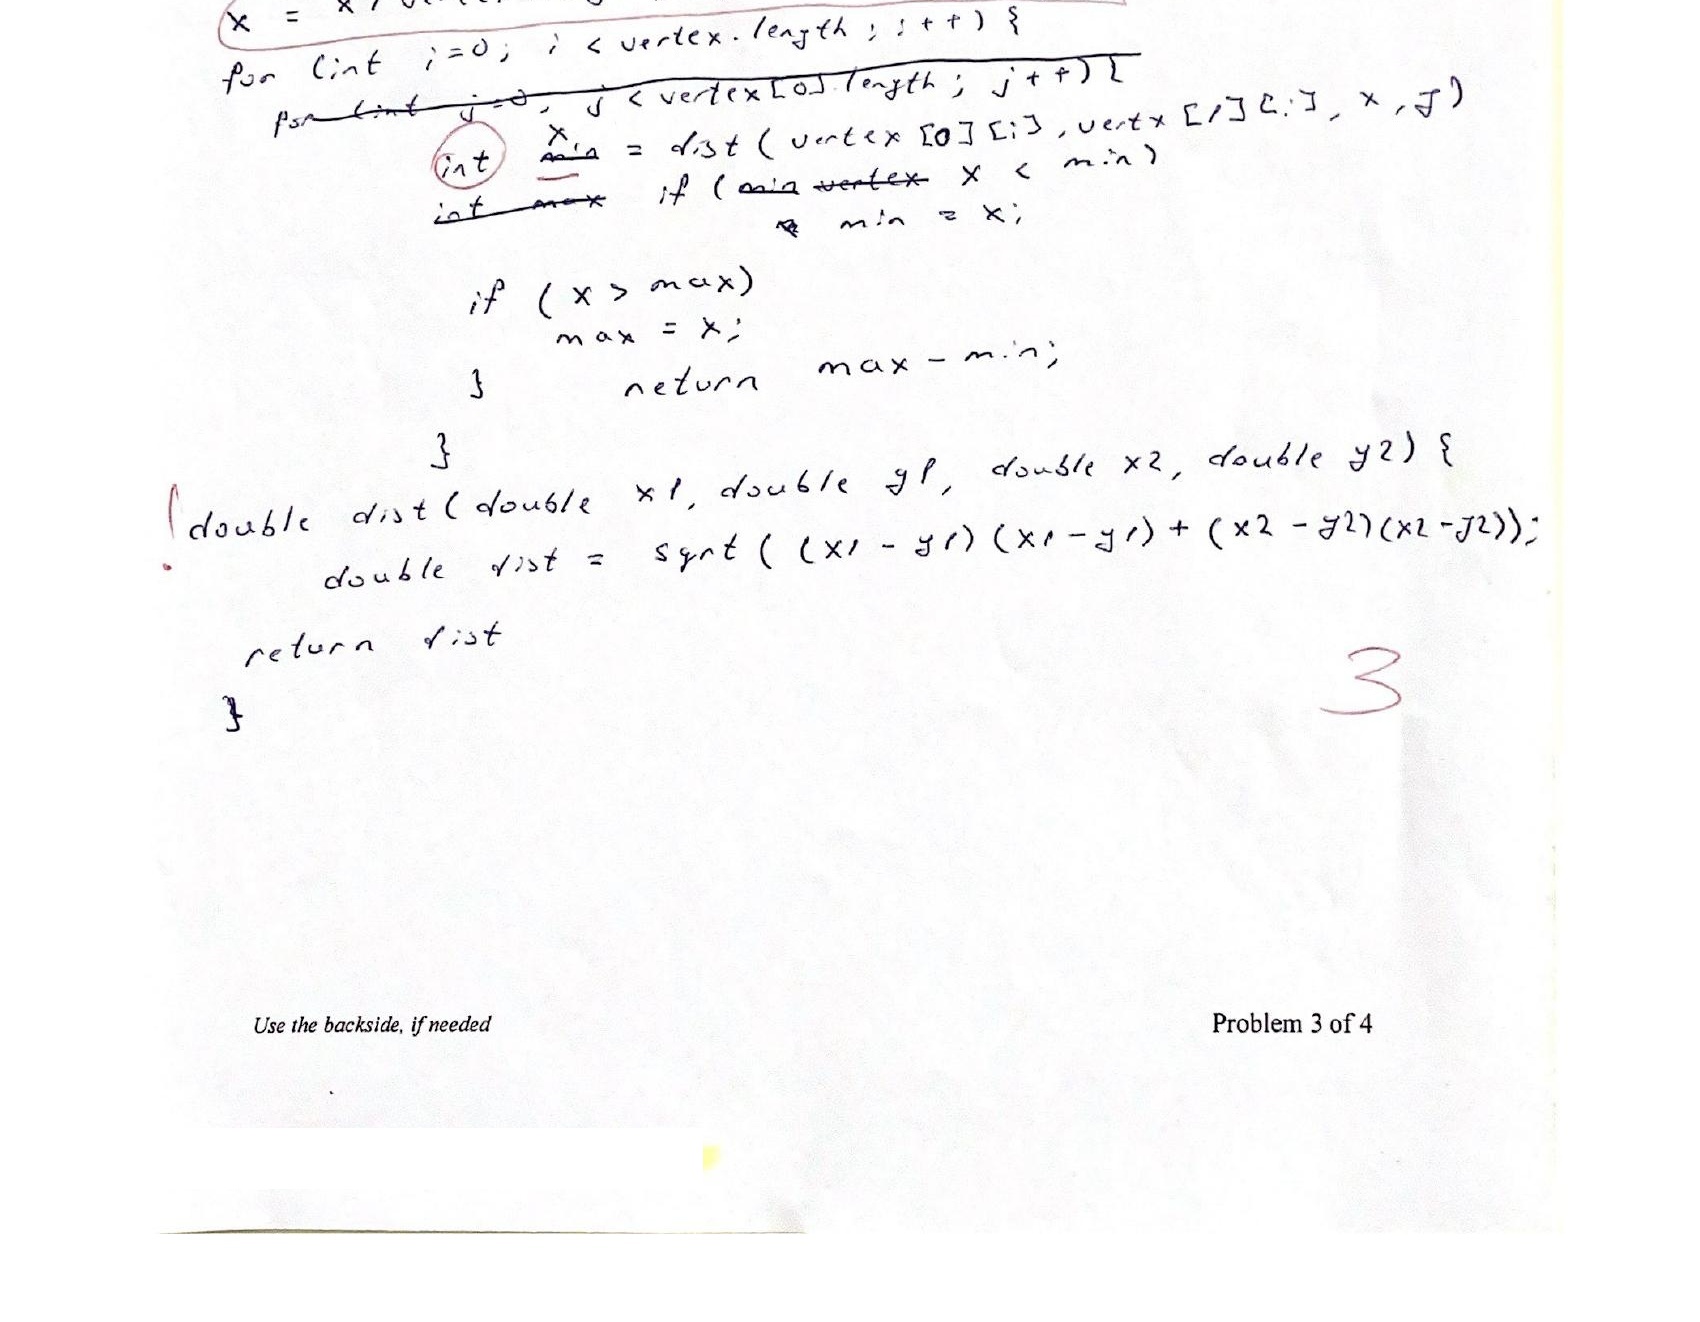 x = x / 
for (int i=0; i < vertex.length; i++) {
for (int j=0, j < vertex[0].length; j++) {
int x min = dist ( vertex [0] [i], vertx [1] [i], x, y)
int max if ( min vertex x < min)
min = x;
if ( x > max)
max = x;
} return max - min;
}
double dist ( double x1, double y1, double x2, double y2) {
double dist = sqrt ( (x1 - y1) (x1 - y1) + (x2 - y2) (x2 - y2));
return dist
}
3
Use the backside, if needed Problem 3 of 4